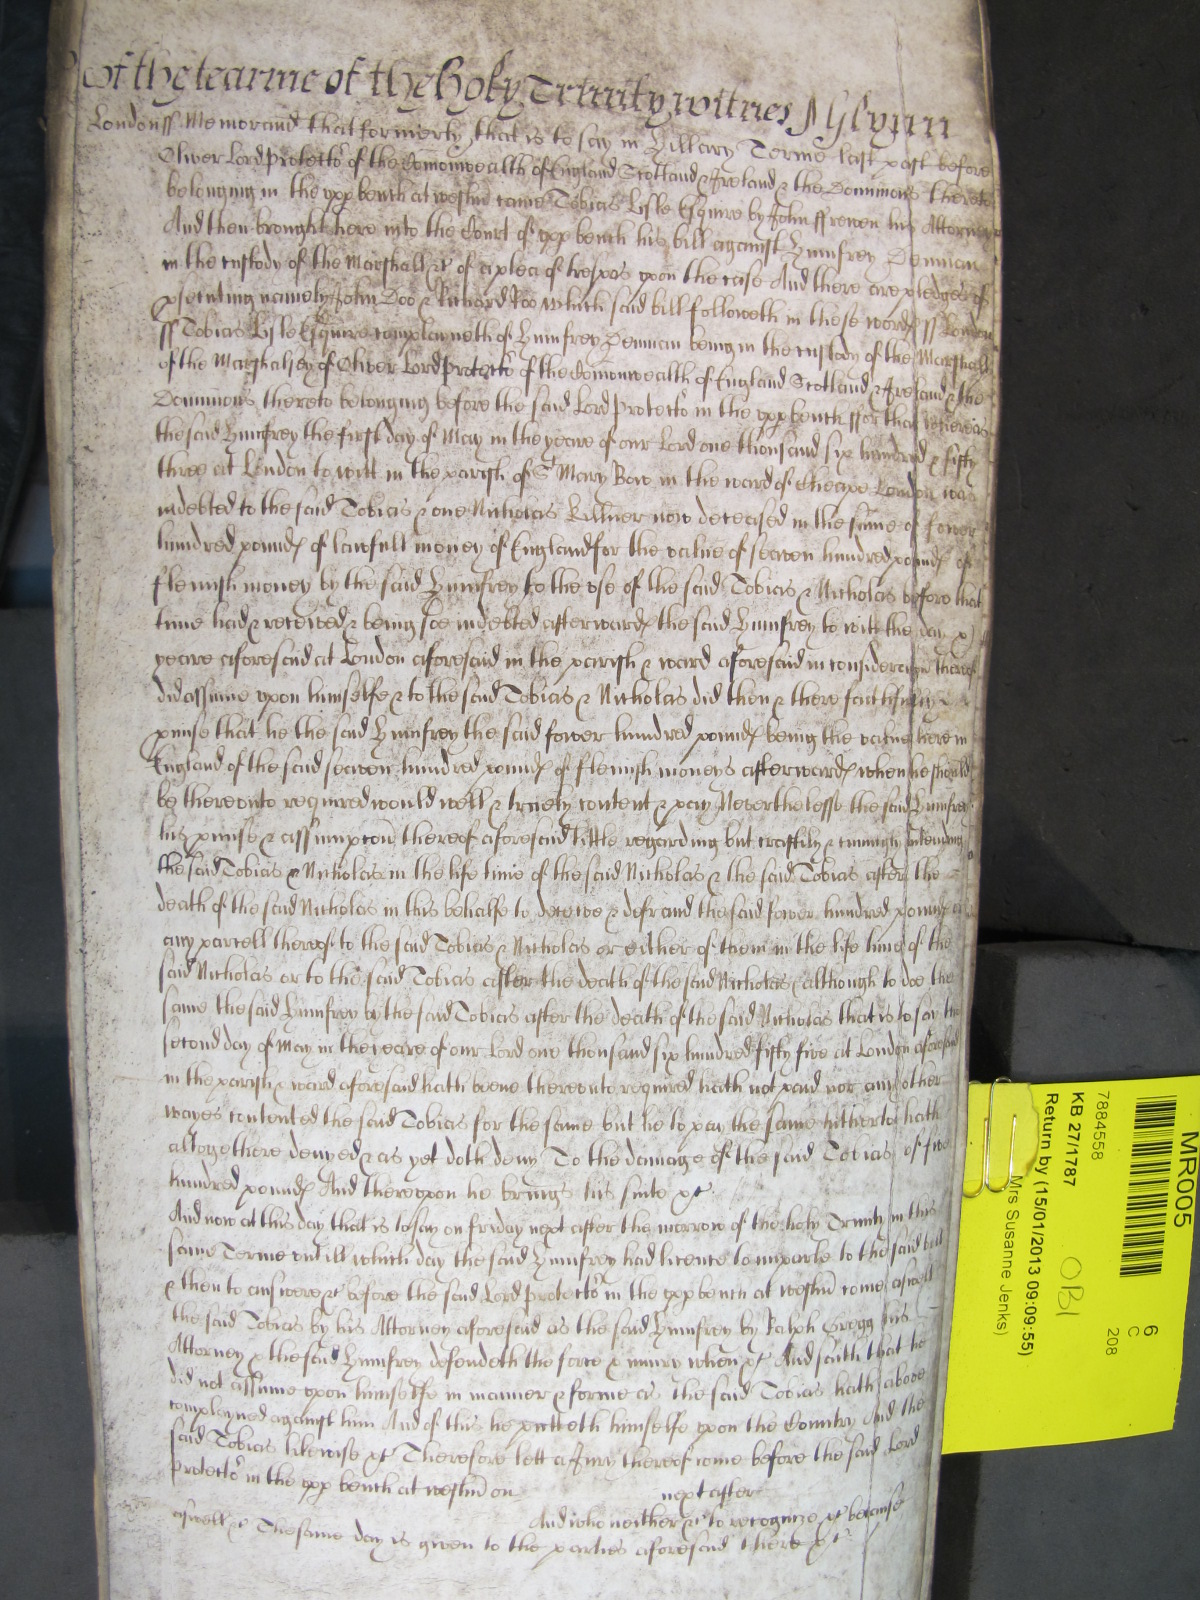 Of the tearme of the Holy Trinity witnes J Glynn
London ss Memorand that formerly that is to say in Hillary Terme last past before
Oliver Lord Protector of the Comonwealth of England Scotland & Ireland & the Dominions thereto
belonging in the upp bench at westm came Tobias Lisle Esquire by John ffrewen his Attorney
And then brought here into the Court of upp bench his bill against Humfrey Denman
in the custody of the Marshall &c of a plea of trespas upon the case And there are pledges of
psecuting namely John Doo & Richard Roo which said bill followeth in these words ss London
ss Tobias Lisle Esquire complayneth of Humfrey Denman being in the custody of the Marshall
of the Marshalsey of Oliver Lord Protector of the Comonwealth of England Scotland & Ireland & the
Dominions thereto belonging before the said Lord Protector in the upp bench ffor that whereas
the said Humfrey the first day of May in the yeare of our Lord one thousand six hundred & fifty
three at London to witt in the parish of St Mary Bow in the ward of Cheape London was
indebted to the said Tobias & one Nicholas Killner now deceased in the sume of fower
hundred pounds of lawfull money of England for the value of seaven hundred pounds of
flemish money by the said Humfrey to the use of the said Tobias & Nicholas before that
time had & received & being soe indebted afterwards the said Humfrey to witt the day &
yeare aforesaid at London aforesaid in the parish & ward aforesaid in consideracon thereof
did assume upon himselfe & to the said Tobias & Nicholas did then & there faithfully
pmise that he the said Humfrey the said fower hundred pounds being the value here in
England of the said seaven hundred pounds of flemish moneys afterwards when he should
be thereunto required would well & truely content & pay Neverthelesse the said Humfrey
his pmise & assumpcon thereof aforesaid little regarding but craftily & cuningly intending
the said Tobias & Nicholas in the life time of the said Nicholas & the said Tobias after the
death of the said Nicholas in this behalfe to deceive & defraud the said fower hundred pounds or
any parcell thereof to the said Tobias & Nicholas or either of them in the life time of the
said Nicholas or to the said Tobias after the death of the said Nicholas (although to doe the
same the said Humfrey by the said Tobias after the death of the said Nicholas that is to say the
second day of May in the yeare of our Lord one thousand six hundred fifty five at London aforesaid
in the parish & ward aforesaid hath beene thereunto required hath not paid nor any other
wayes contented the said Tobias for the same but he to pay the same hitherto hath
altogethere denyed & as yet doth deny To the damage of the said Tobias of five
hundred pounds And thereupon he brings his suite &c
And now at this day that is to say on friday next after the morrow of the holy Trinity in this
same Terme untill which day the said Humfrey had licence to imparle to the said bill
& then to answere &c before the said Lord Protector in the upp bench at westm come aswell
the said Tobias by his Attorney aforesaid as the said Humfrey by Ralph Gregg his
Attorney & the said Humfrey defendeth the force & iniury when &c And saith that he
did not assume upon himselfe in manner & forme as the said Tobias hath above
complayned against him And of this he putteth himselfe upon the Country And the
said Tobias likewise &c Therefore lett a Jury thereof come before the said Lord
Protector in the upp bench at westm on next after
And who neither &c to recognize &c because
aswell &c The same day is given to the parties aforesaid there &c
MR005
6
C
208
7884558
KB 27/1787
OBI
Return by (15/01/2013 09:09:55)
Mrs Susanne Jenks)